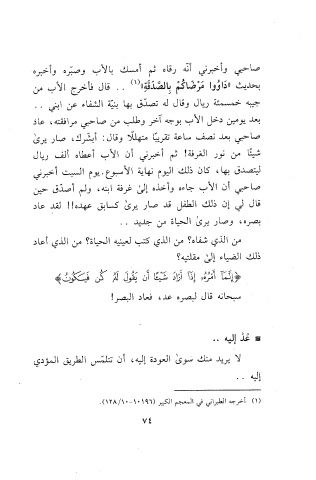 صاحبي وأخبرني أنّه رقاه ثم أمسك بالأب وصبّره وأخبره
بحديث «دَاوُوا مَرْضَاكُمْ بِالصَّدَقَةِ»(١) .. قال فأخرج الأب من
جيبه خمسمئة ريال وقال له تصدّق بها بنيّة الشفاء عن ابني ..
بعد يومين دخل الأب بوجه آخر وطلب من صاحبي مرافقته، عاد
صاحبي بعد نصف ساعة تقريبًا متهللًا وقال: أبشّرك، صار يرىٰ
شيئًا من نور الغرفة! ثم أخبرني أن الأب أعطاه ألف ريال
ليتصدق بها، كان ذلك اليوم نهاية الأسبوع.يوم السبت أخبرني
صاحبي أن الأب جاءه وأخذه إلىٰ غرفة ابنه، ولم أصدّق حين
قال لي إن ذلك الطفل قد صار يرىٰ كسابق عهده!! لقد عاد
بصره، وصار يرىٰ الحياة من جديد ..
من الذي شفاه؟ من الذي كتب لعينيه الحياة؟ من الذي أعاد
ذلك الضياء إلىٰ مقلتيه؟
﴿إِنَّمَآ أَمْرُهُۥٓ إِذَآ أَرَادَ شَيْـًٔا أَن يَقُولَ لَهُۥ كُن فَيَكُونُ﴾
سبحانه قال لبصره عد، فعاد البصر!
■ عُدْ إليه ..
لا يريد منك سوىٰ العودة إليه، أن تتلمّس الطريق المؤدي
إليه ..
(١) أخرجه الطبراني في المعجم الكبير (١٠١٩٦-١٢٨/١٠).
٧٤